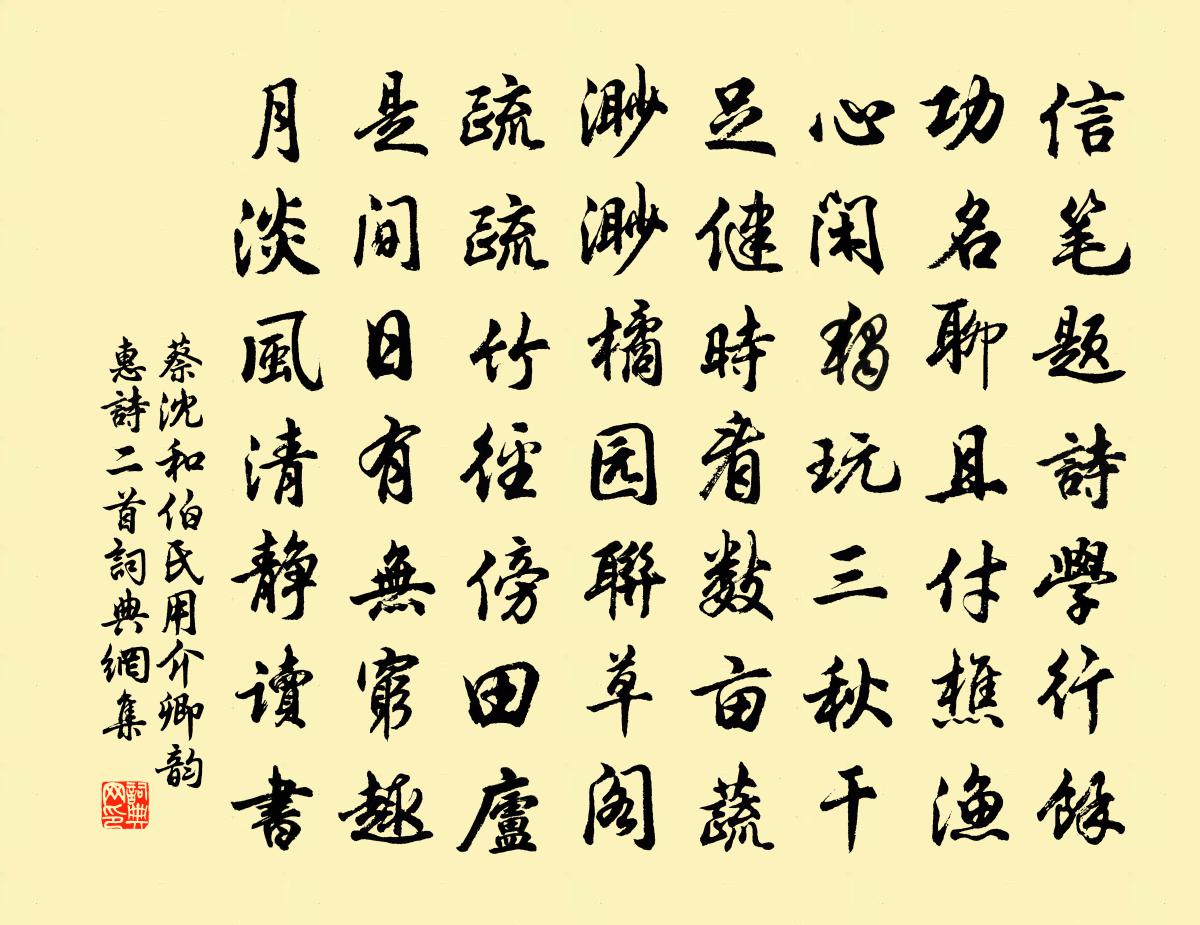 信笔題詩學行餘
功名聊且付樵漁
心闲獨玩三秋干
足健時看数亩蔬
渺渺橘园聯草阁
疏疏竹徑傍田廬
是间日有無窮趣
月淡風清静讀書
蔡沈和伯氏用介卿韵
惠詩二首詞典網集
詞典
网印